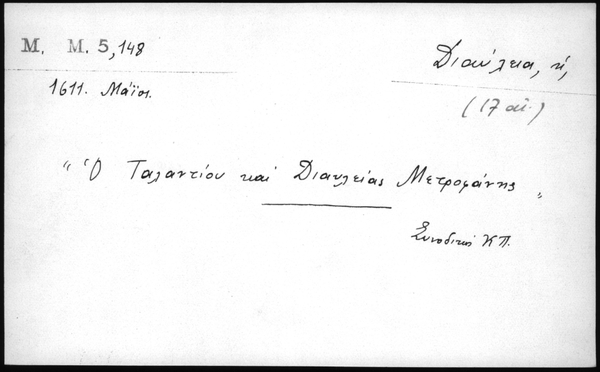 Μ. Μ. 5,148
Διαύλεια, ἡ,
1611. Μάϊος.
(17 αἰ.)
"Ὁ Ταλαντίου καὶ Διαυλείας Μητροφάνης"
Συνοδικὴ ΚΠ.